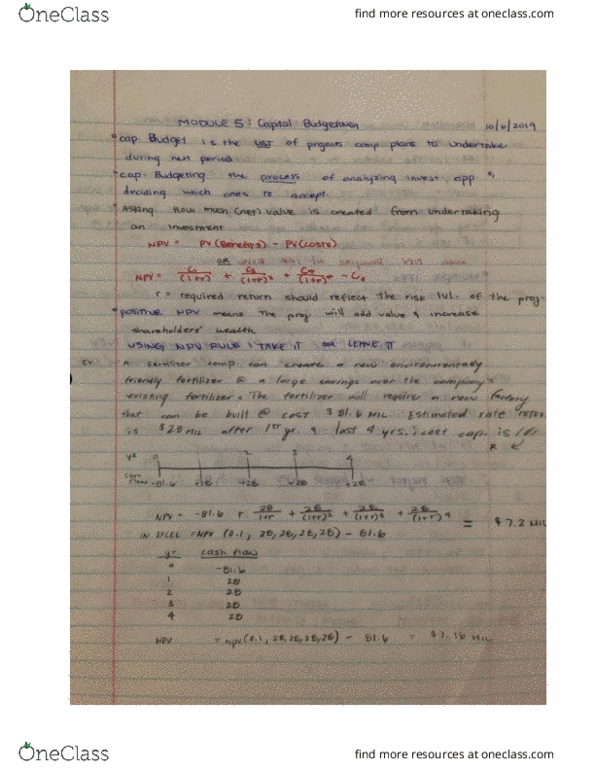 OneClass
find more resources at oneclass.com
MODULE 5: Capital Budgeting
10/6/2019
• cap. Budget is the LIST of projects comp plans to undertake
during next period.
• cap. Budgeting the process of analyzing invest. opp &
deciding which ones to accept.
• Asking How much (net) value is created from undertaking
an investment
NPV = PV(Benefits) - PV(Costs)
OR
NPV = C₁/(1+r) + C₂/(1+r)² + /(1+r) - C₀
r = required return should reflect the risk lvl. of the proj
• positive NPV means the proj will add value & increase
shareholders' wealth.
USING NPV RULE: TAKE IT OR LEAVE IT
Ex. A fertilizer comp can create a new environmentally
friendly fertilizer @ a large savings over the company's
existing fertilizer. The fertilizer will require a new factory
that can be built @ cost $81.6 MIL. Estimated rate
is $28 MIL after 1st yr. & last 4 yrs. cost cap. is
R
yr 0 1 2 3 4
cash flow -81.6 +28 +28 +28 +28
NPV = -81.6 + 28/1+r + 28/(1+r)² + 28/(1+r)³ + 28/(1+r)4 = $7.2 MIL
IN EXCEL =NPV (0.1, 28, 28, 28, 28) - 81.6
yr cash flow
0 -81.6
1 28
2 28
3 28
4 28
NPV = npv(0.1, 28, 28, 28, 28) - 81.6 = $7.16 MIL
OneClass
find more resources at oneclass.com